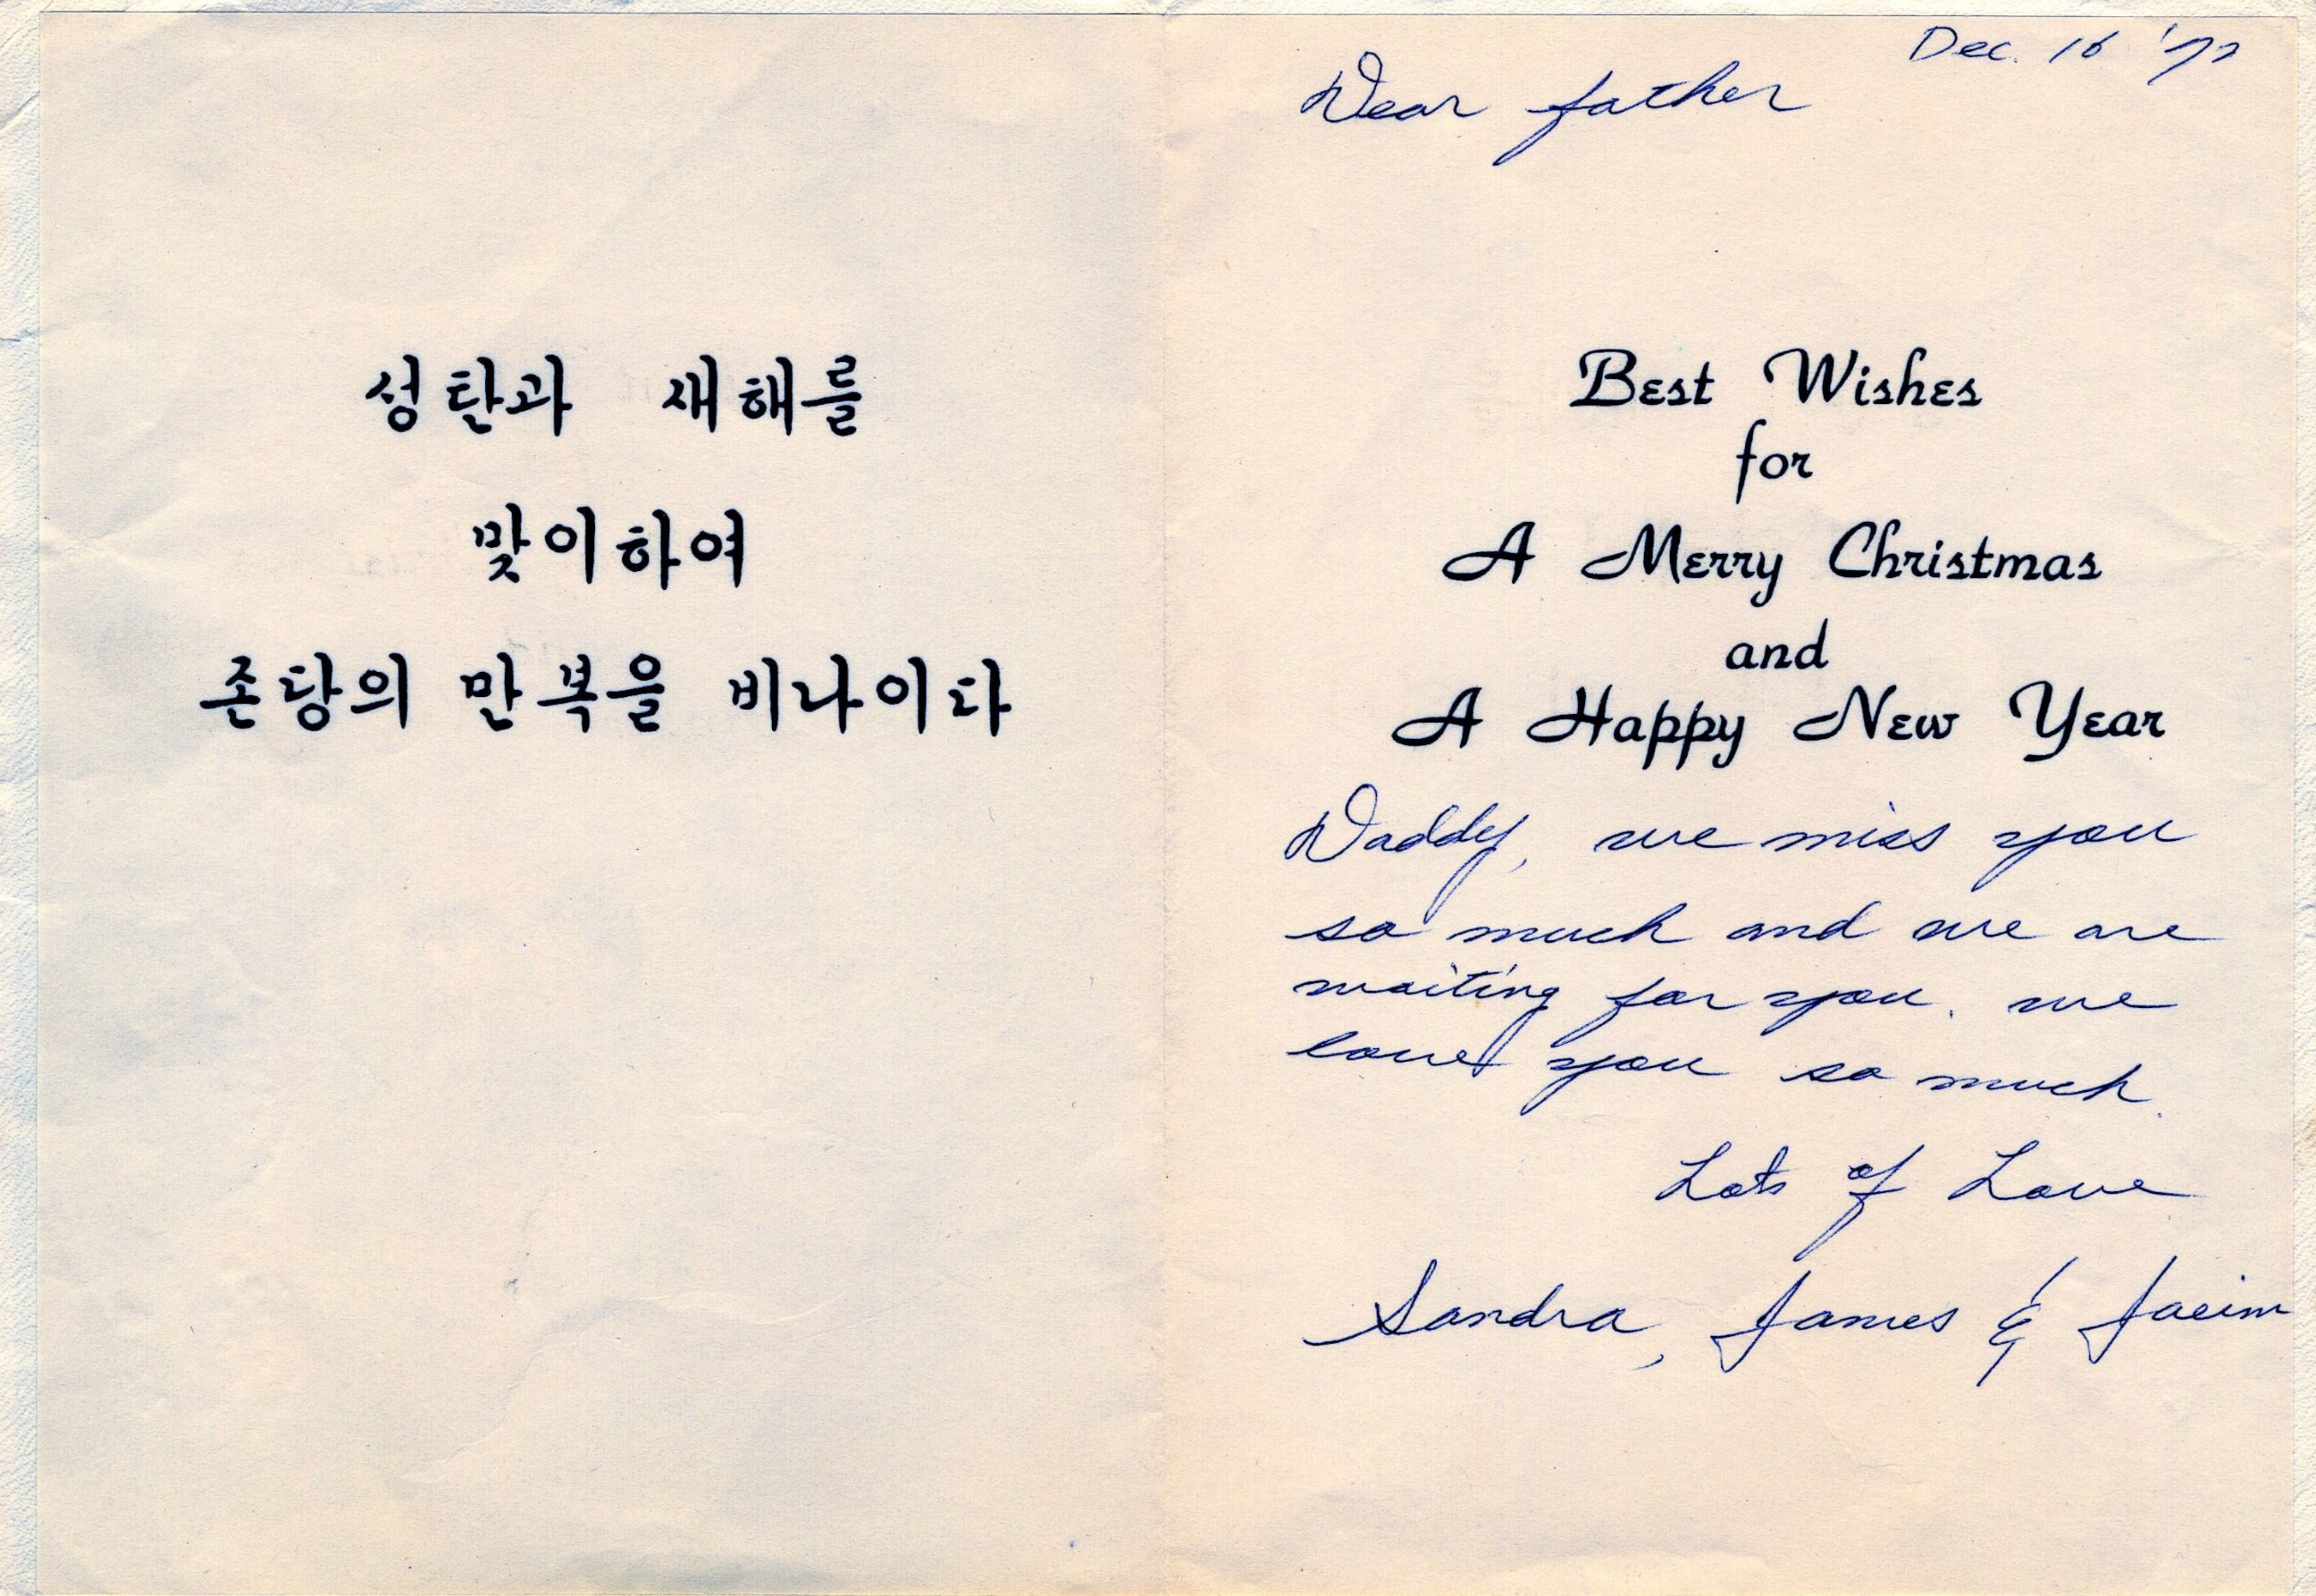 성탄과 새해를
맞이하여
존당의 만복을 비나이다
Dec. 16 '72
Dear father
Best Wishes
for
A Merry Christmas
and
A Happy New Year
Daddy, we miss you
so much and we are
waiting for you. we
love you so much.
Lots of Love
Sandra, James &